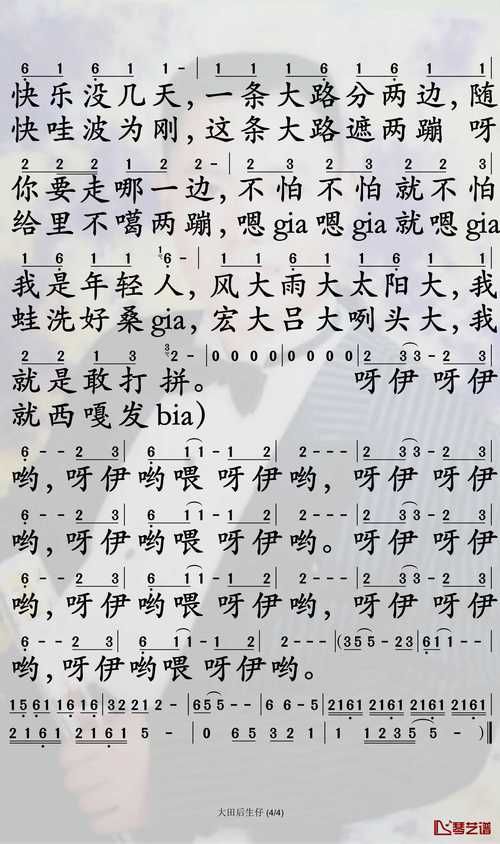 6 1 6 1 1 - | 1 1 1 6 1 6 1 1
快乐没几天,一条大路分两边,随
快哇波为刚,这条大路遮两蹦 呀
2 2 2 1 2 2 - | 2 3 2 3 2 3
你要走哪一边,不怕不怕就不怕
给里不噶两蹦,嗯gia嗯gia就嗯gia
1 6 1 6 1 6 - | 1 1 6 1 1 6 1
我是年轻人,风大雨大太阳大,我
蛙洗好桑gia,宏大吕大咧头大,我
2 2 1 3 2 - | 0 0 0 0 | 0 0 0 0 | 2 3 3 - 2 3
就是敢打拼。 呀伊 呀伊
就西嘎发bia)
6 - - 2 3 | 6 1 1 - 1 2 | 6 - - 2 3 | 2 3 3 - 2 3
哟,呀伊哟喂 呀伊哟,呀伊 呀伊
6 - - 2 3 | 6 1 1 - 1 2 | 2 - - - | 2 3 3 - 2 3
哟,呀伊哟喂 呀伊哟。呀伊 呀伊
6 - - 2 3 | 6 1 1 - 1 2 | 6 - - 2 3 | 2 3 3 - 2 3
哟,呀伊哟喂 呀伊哟,呀伊 呀伊
6 - - 2 3 | 6 1 1 - 1 2 | 2 - - - | (3 5 5 - 2 3 | 6 1 1 - - |
哟,呀伊哟喂 呀伊哟。
1 5 6 1 1 6 1 6 | 3 2 2 1 2 - | 6 5 5 - - | 6 6 5 - | 2161 2161 2161 2161 |
2 1 6 1 2 1 6 1 5 - | 0 6 5 3 2 1 | 1 1 2 3 5 5 - ) ||
大田后生仔 (4/4)
琴艺谱